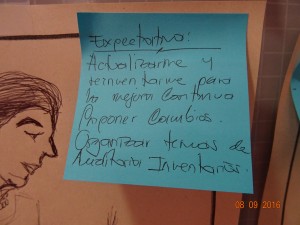 Expectativa:
Actualizarme y
reinventarme para
la mejora continua
Proponer Cambios.
Organizar temas de
Auditoria Inventarios.
08 09 2016